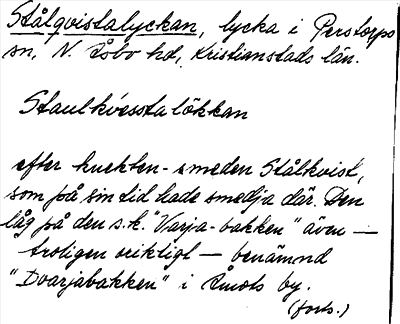 Stålqvistalyckan, lycka i Perstorps
sn, N. Åsbo hd, Kristianstads län.
Staulkvessta lökkan
efter knekten-smeden Stålkvist,
som på sin tid hade smedja där. Den
låg på den s.k. "Varja-bakken" även —
troligen oriktigt — benämnd
"Dvarjabakken" i Åmots by.
(forts.)